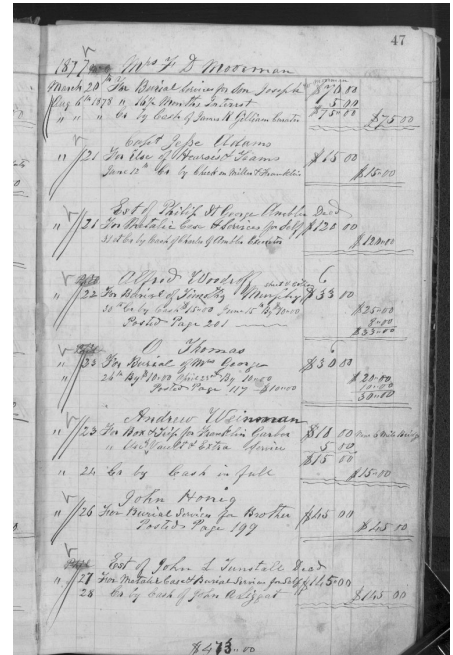 47
1877 Mrs F D Mooreman
March 20th For Burial Services for Son Joseph $70.00
Aug 6th 1878 " Months Interest 5.00
" " " Cr by Cash of James H Gilliam $75.00 $75.00
Capt Jesse Adams
" 21 For Use of Hearse & Teams $15.00
June 12th Cr by Check on Miller & Franklin $15.00
Est of Philip St George Ambler Decd
" 21 For Metalic Case & Services for Self $120.00
31st Cr by Cash of Charles Ambler $120.00
Alfred Woodroff
" 22 For Burial of Timothy $33.00
30th Cr by Cash $15.00 June 15th By $10.00 $25.00
Posted Page 201 8.00
$33.00
O Thomas
" 23 For Burial of Mrs George $30.00
24th By $10.00 25th By 10.00 $20.00
Posted Page 117 $10.00 10.00
30.00
Andrew Weinman
" 23 For Box & for Franklin $10.00
" Vault & Extra Service 5.00
$15.00
" 24 Cr by Cash in full $15.00
John Honig
" 26 For Burial Services for Brother $45.00
Posted Page 199 $45.00
Est of John L Tunstall Decd
" 27 For Metalic Case & Burial Services for Self $145.00
28 Cr by Cash of John $145.00
$473.00